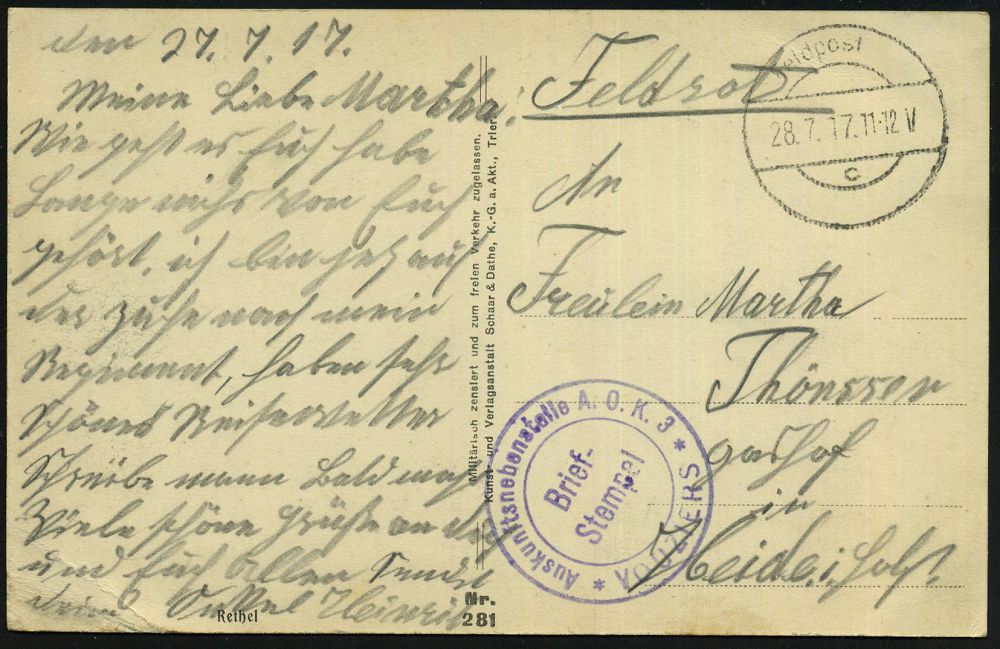 den 27. 7. 17.
Meine Liebe Martha!
Wie geht es Euch habe
Lange nichs von Euch
gehört, ich bin jetz auf
der zuhe nach mein
Regement, haben sehr
schönes Reisewetter
Schreibe mann Bald mahl
Viele schöne Grüße an
und Euch allen Sendet
dein Onkel Heinrich
Rethel
Nr.
281
Militärisch zensiert und zum freien Verkehr zugelassen.
Kunst- und Verlagsanstalt Schaar & Dathe, K.-G. a. Akt., Trier.
Feldpost
28.7.17.11-12 V
c
An
Freulein Martha
Thönsson
gashof
in
Heide, i, Holst
Auskunftsnebenstelle A. O. K. 3 * VOUZIERS *
Brief-
Stempel